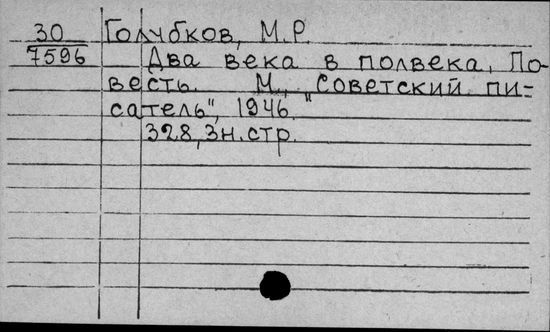 30 Голубков, М.Р.
7596 Два века в полвека. По-
весть. М., "Советский пи-
сатель", 1946.
328, 3н.стр.